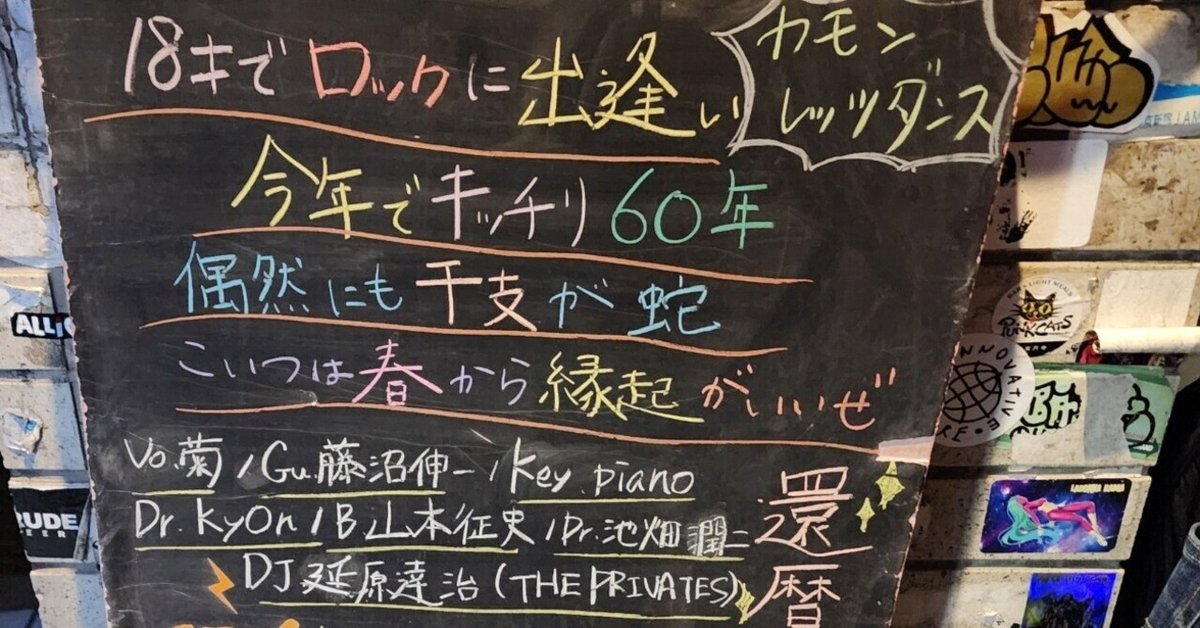 18才でロックに出逢い
カモン
レッツダンス
今年でキッチリ60年
偶然にも干支が蛇
こいつは春から縁起がいいぜ
Vo.菊/Gu.藤沼伸一/Key.piano
Dr.kyOn/B山本征史/Dr.池畑潤二
DJ延原達治(THE PRIVATES)
還暦
ALLI
RUDE
PUNKCATS
INNOVATIVE